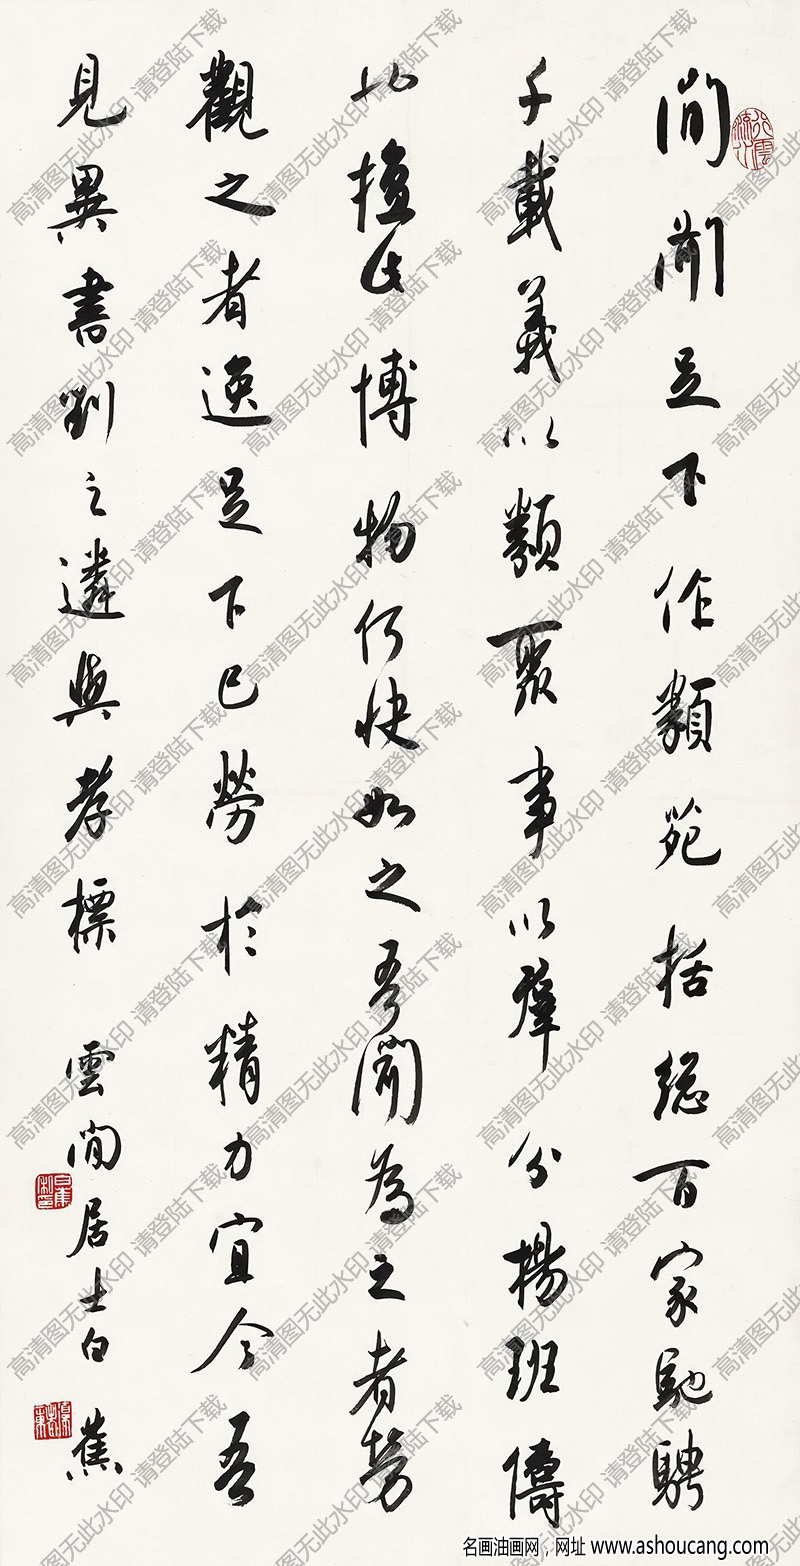 間聞足下作類苑括總百家馳騁
千載義以類聚事以群分楊班儔
也擅此博物何快如之吾聞為之者勞
觀之者逸足下已勞於精力宜令吾
見異書劉之遴與孝標 雲間居士白蕉
高清图无此水印 请登陆下载
名画油画网，网址 www.ashoucang.com